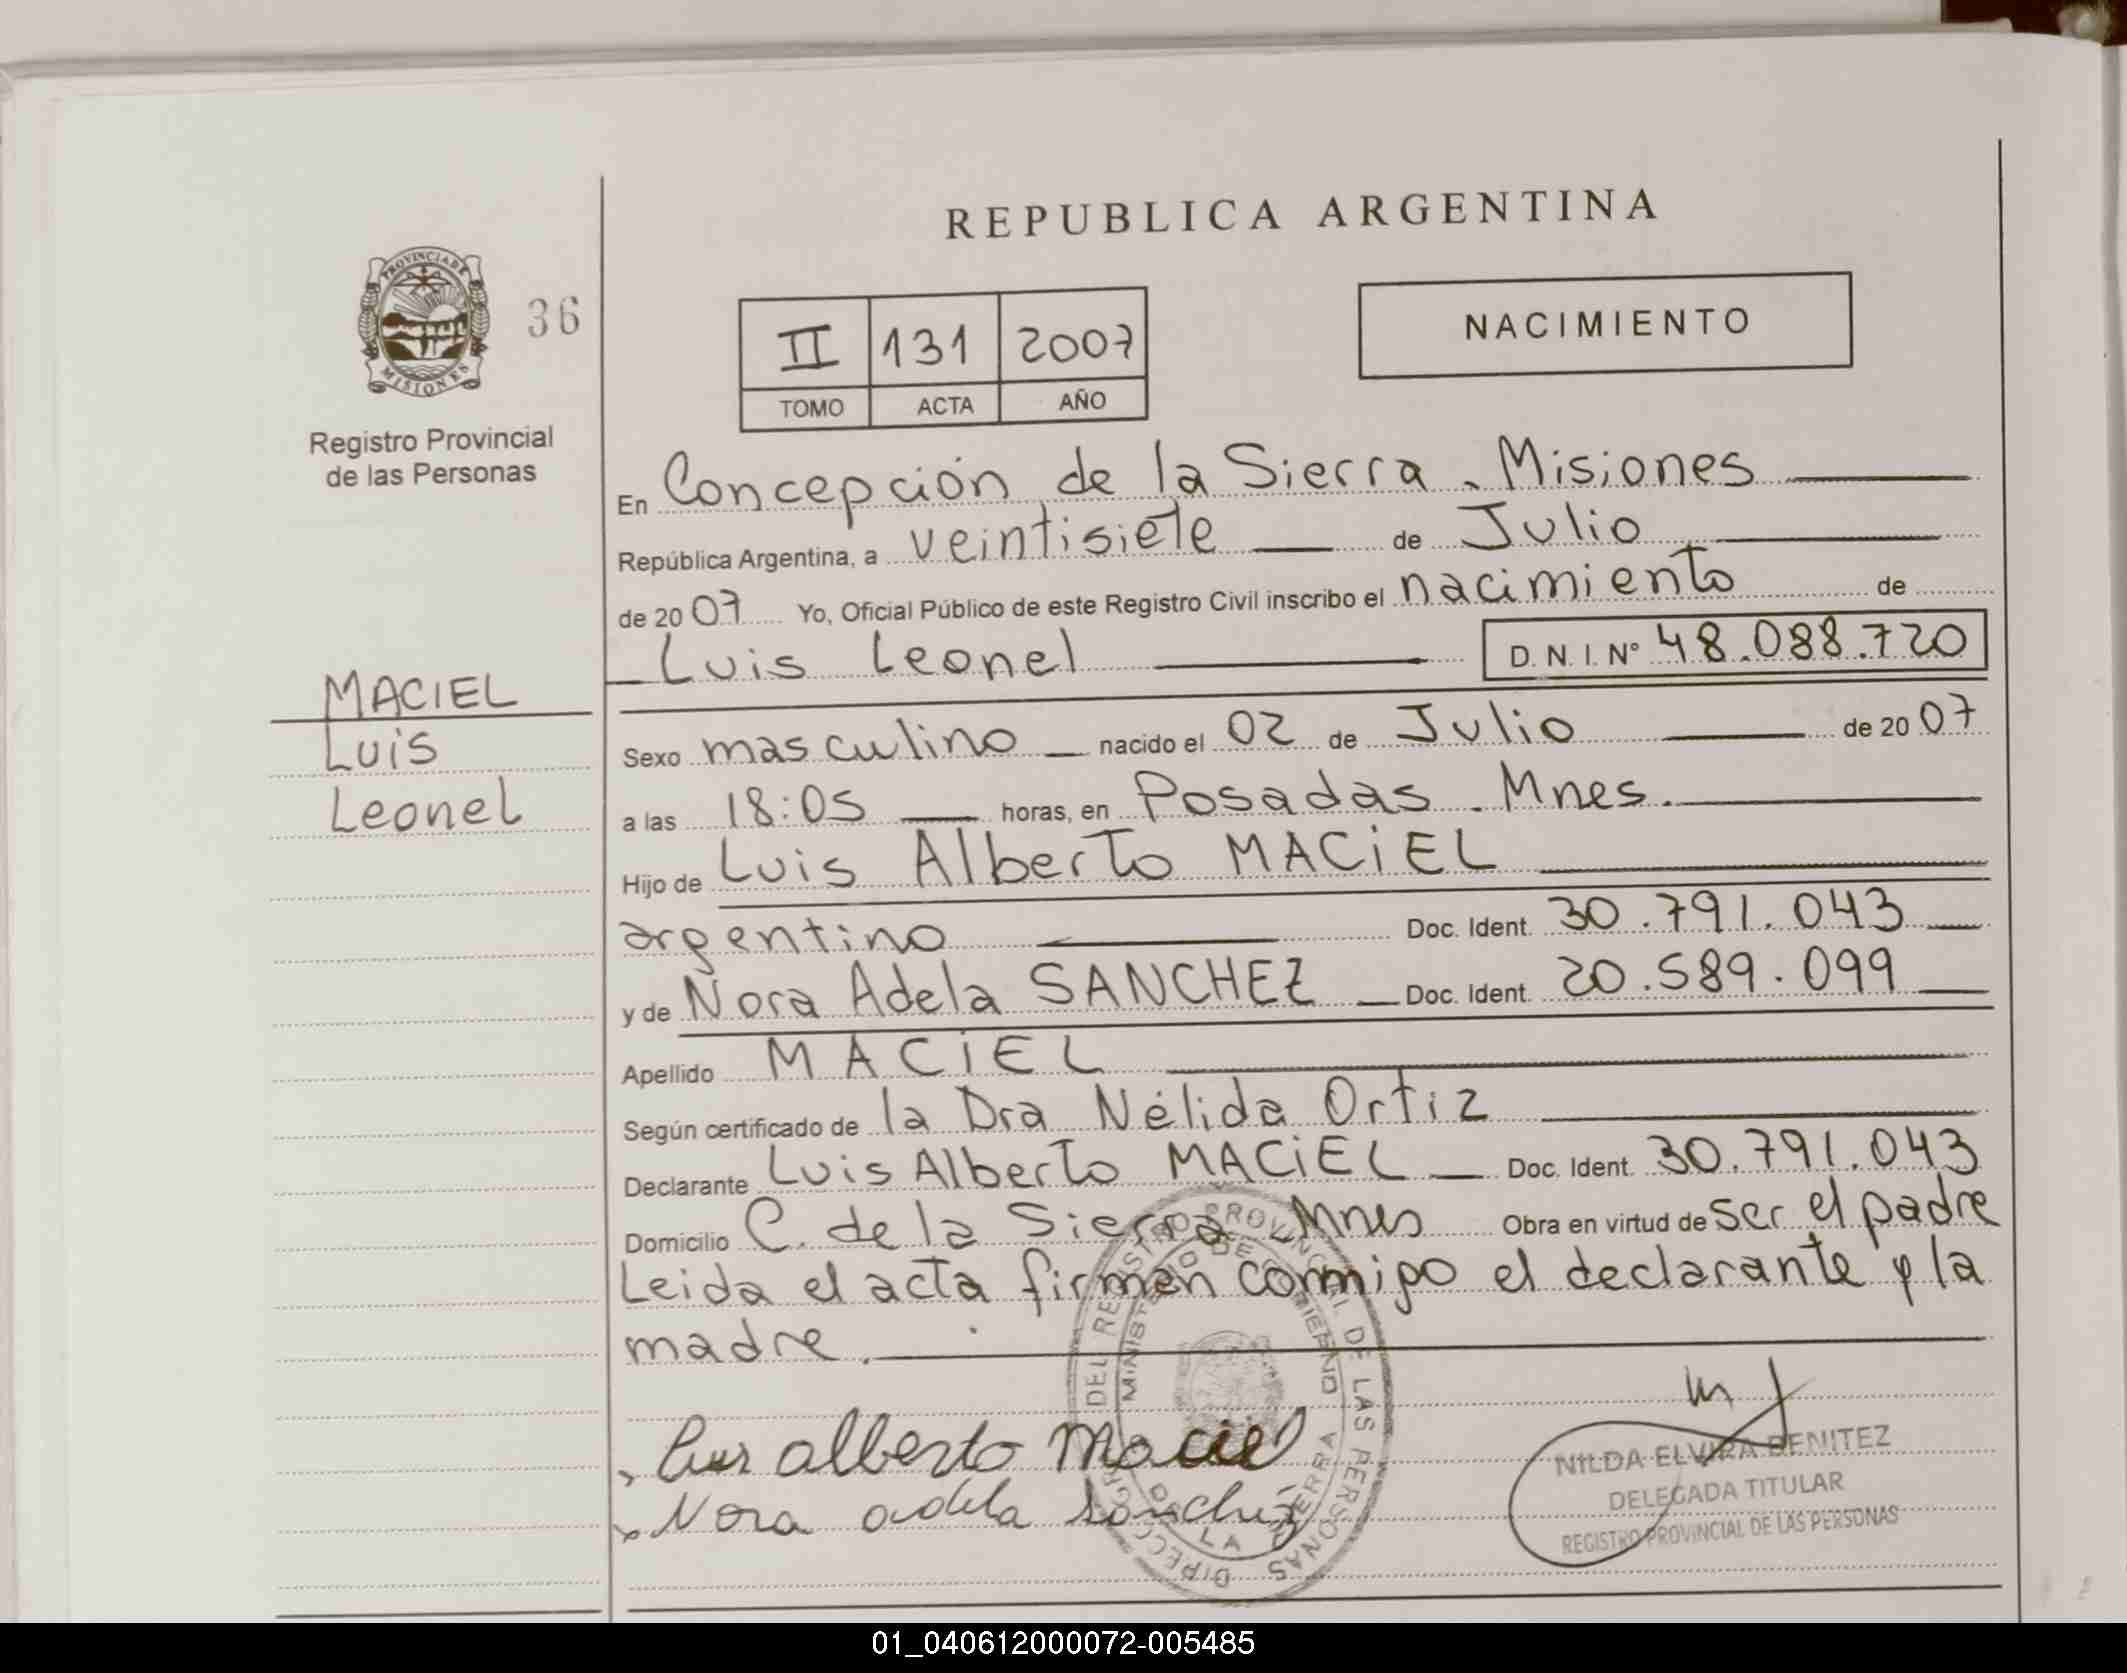 REPUBLICA ARGENTINA
PROVINCIA DE MISIONES
36
Registro Provincial
de las Personas
II 131 2007
TOMO ACTA AÑO
NACIMIENTO
En Concepción de la Sierra. Misiones
República Argentina, a veintisiete de Julio
de 2007 Yo, Oficial Público de este Registro Civil inscribo el nacimiento de
Luis Leonel D. N. I. Nº 48.088.720
MACIEL
Luis
Leonel
Sexo masculino nacido el 02 de Julio de 2007
a las 18:05 horas, en Posadas. Mnes.
Hijo de Luis Alberto MACIEL
argentino Doc. Ident. 30.791.043
y de Nora Adela SANCHEZ Doc. Ident. 20.589.099
Apellido MACIEL
Según certificado de la Dra Nélida Ortiz
Declarante Luis Alberto MACIEL Doc. Ident. 30.791.043
Domicilio C. de la Sierra Mnes Obra en virtud de ser el padre
Leida el acta firman conmigo el declarante y la
madre.
Luis alberto Maciel
Nora adela Sanchez
DIRECC. GRAL DEL REGISTRO PROVINCIAL DE LAS PERSONAS
MINISTERIO DE GOBIERNO
DE LA SIERRA
NILDA ELVIRA BENITEZ
DELEGADA TITULAR
REGISTRO PROVINCIAL DE LAS PERSONAS
01_040612000072-005485